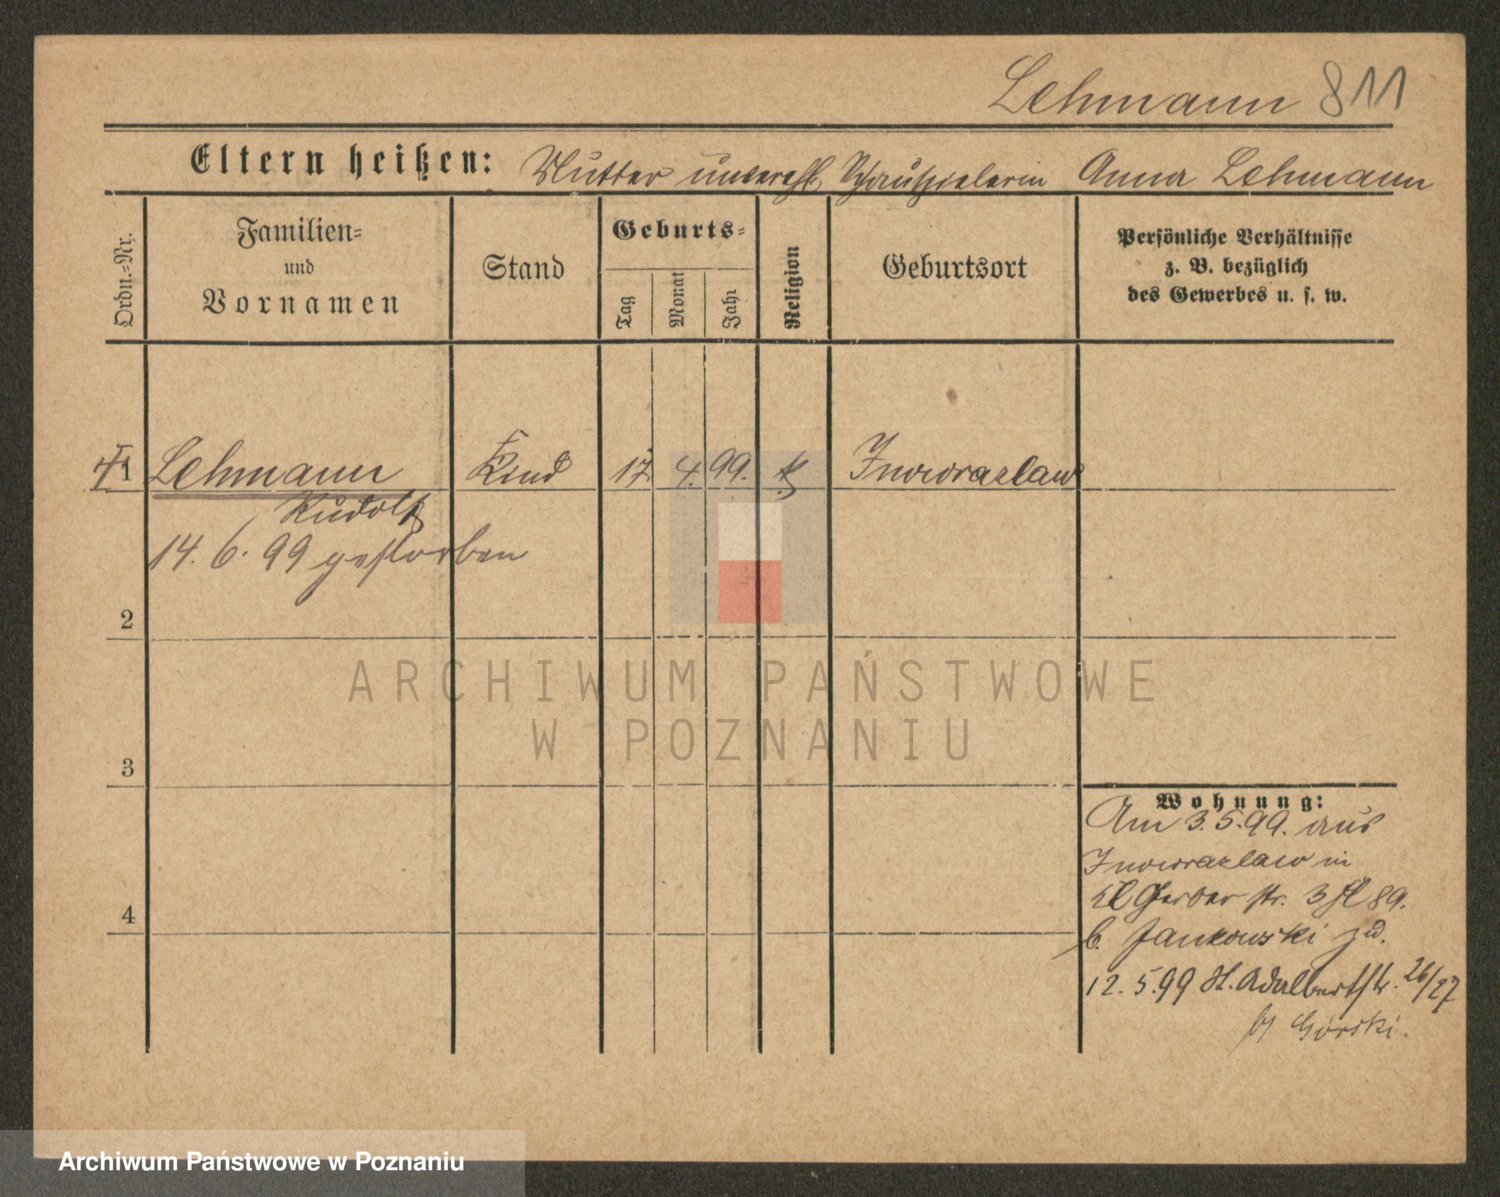 Lehmann 811
Eltern heißen: Mutter unverehl. Schauspielerin Anna Lehmann
Ordn.=Nr.
Familien=
und
Vornamen
Stand
Geburts=
Tag
Monat
Jahr
Religion
Geburtsort
Persönliche Verhältnisse
z. B. bezüglich
des Gewerbes u. s. w.
1 Lehmann Kind 17. 4. 99. k. Inowrazlaw
Rudolf
14. 6. 99 gestorben
2
3
4
Wohnung:
Am 3.5.99. aus
Inowrazlaw in
Gerber str. 3
b. Jankowski zu.
12.5.99 St. Adalbertstr. 26/27
b/ Górski.
ARCHIWUM PAŃSTWOWE
W POZNANIU
Archiwum Państwowe w Poznaniu